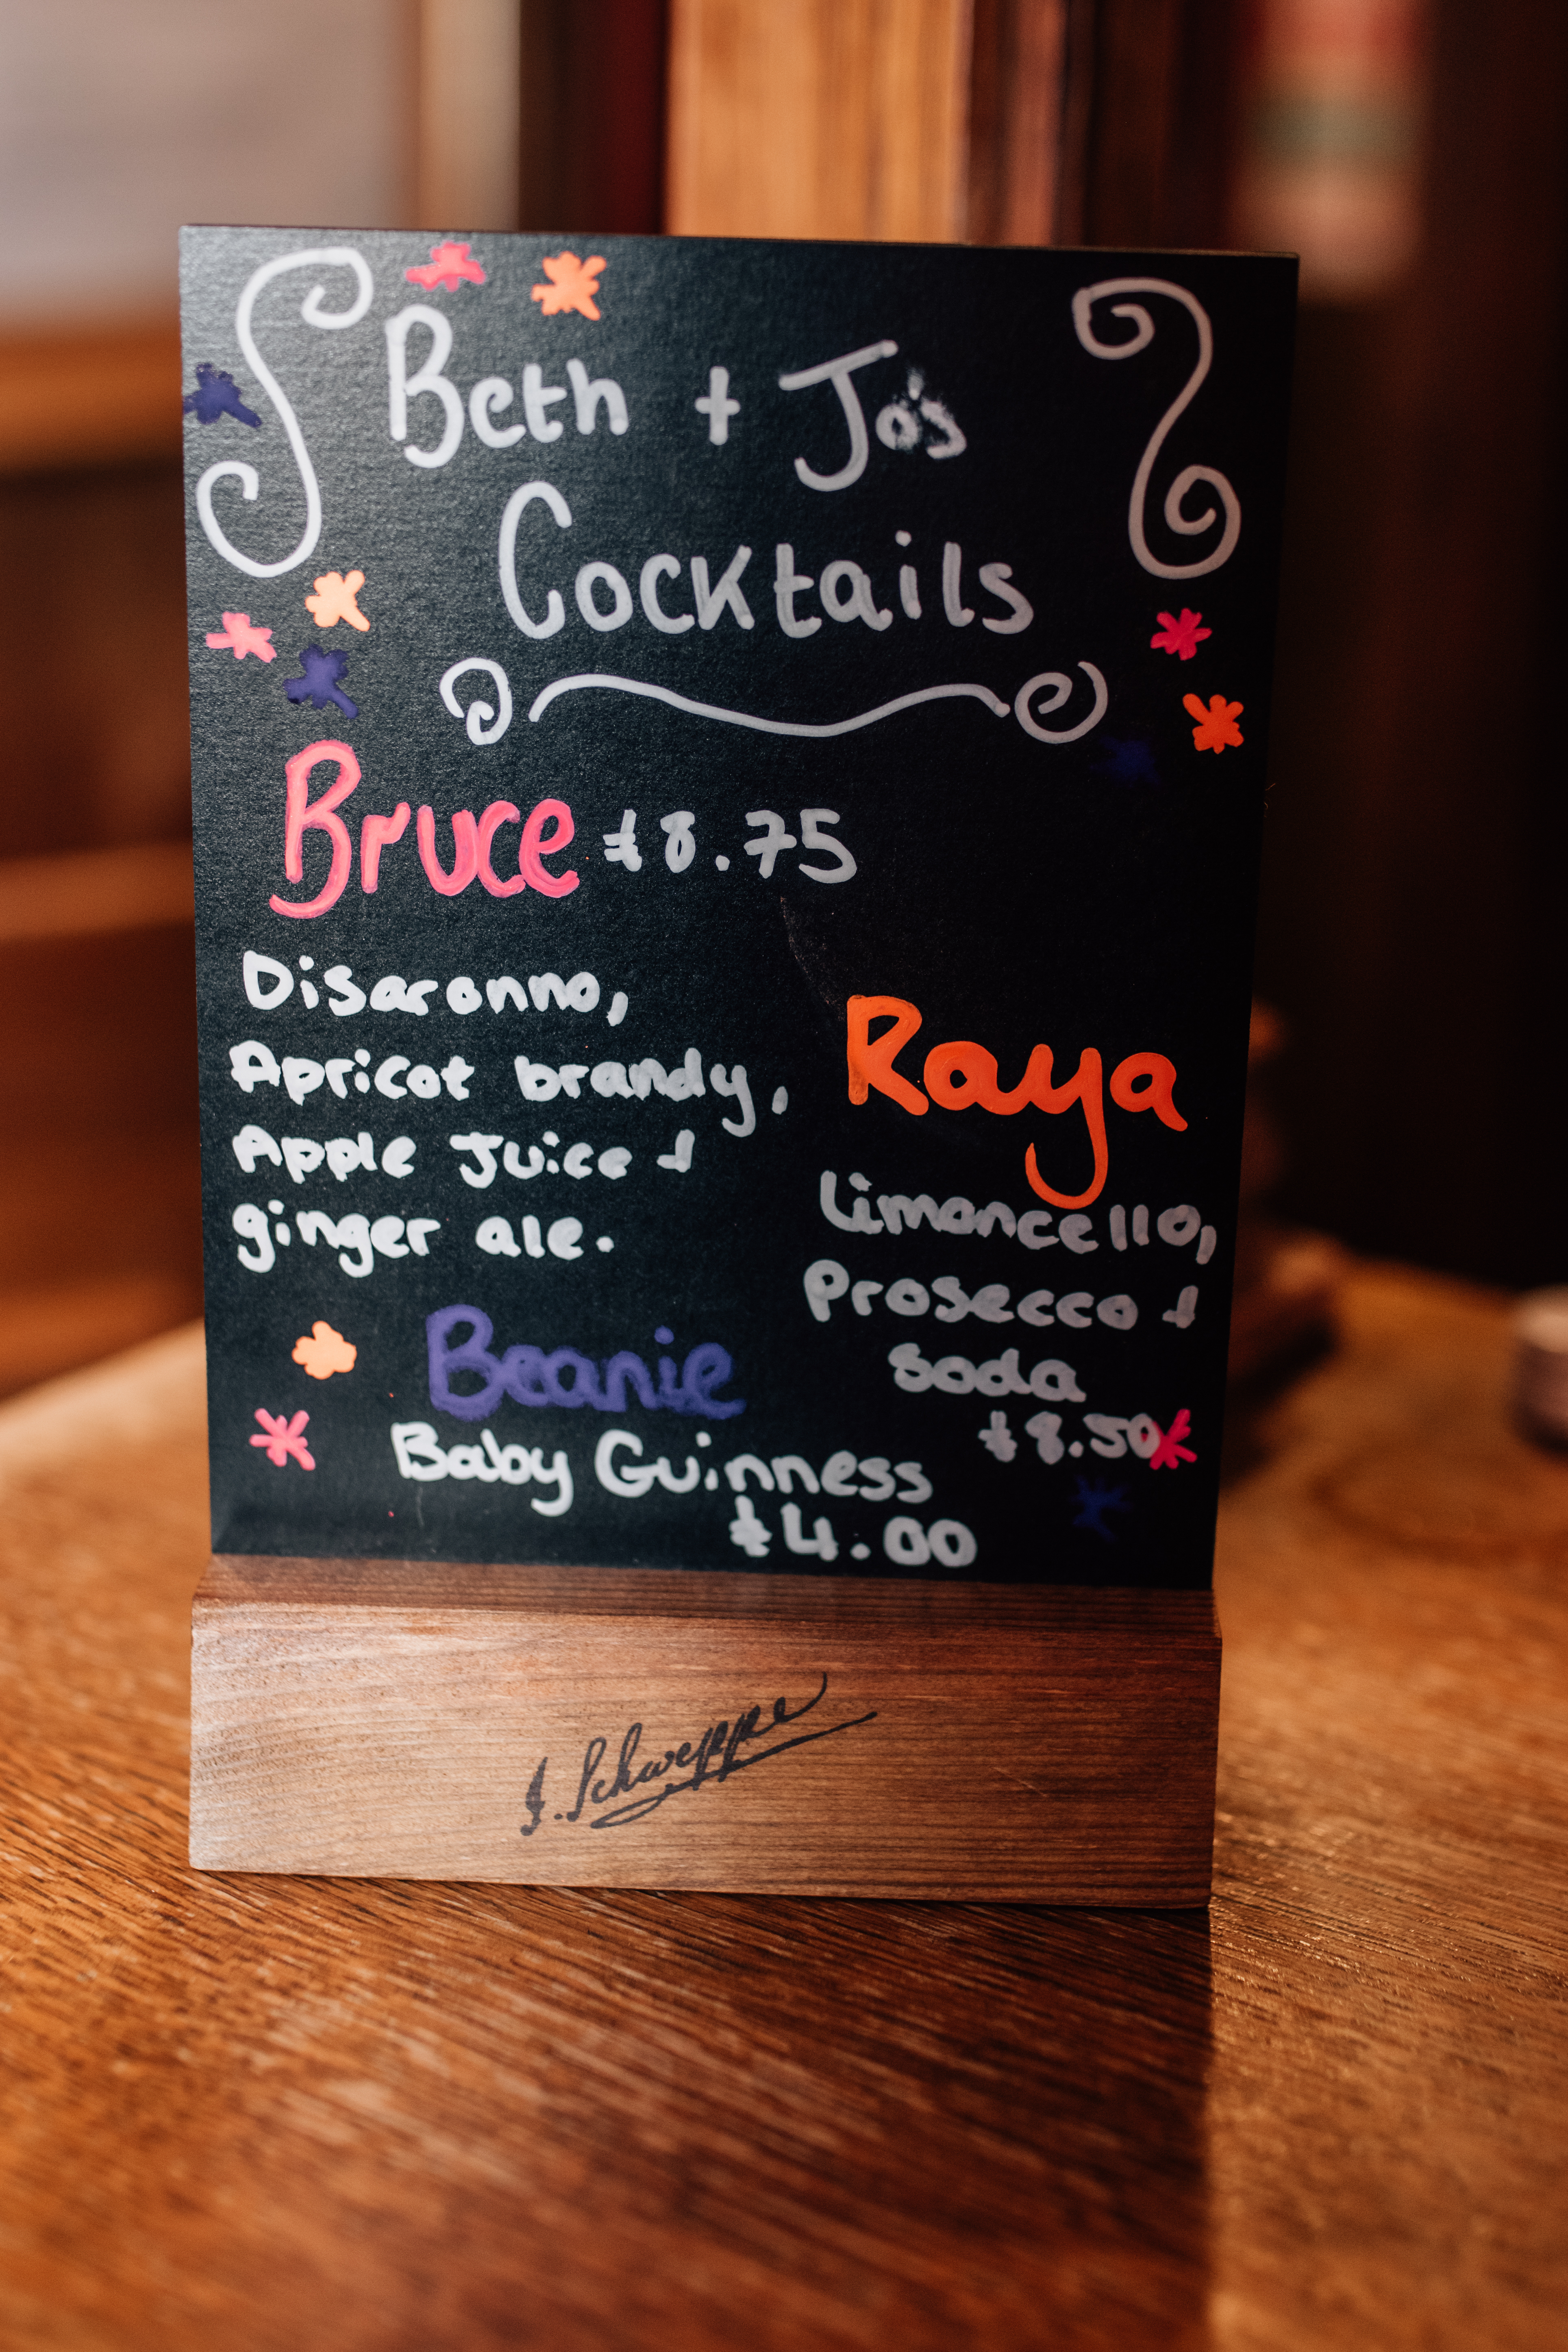 Beth + Jo's
Cocktails
Bruce £8.75
Disaronno,
Apricot brandy,
Apple Juice +
ginger ale.
Raya
Limoncello,
Prosecco +
soda
£8.50
Beanie
Baby Guinness
£4.00
J. Schweppe